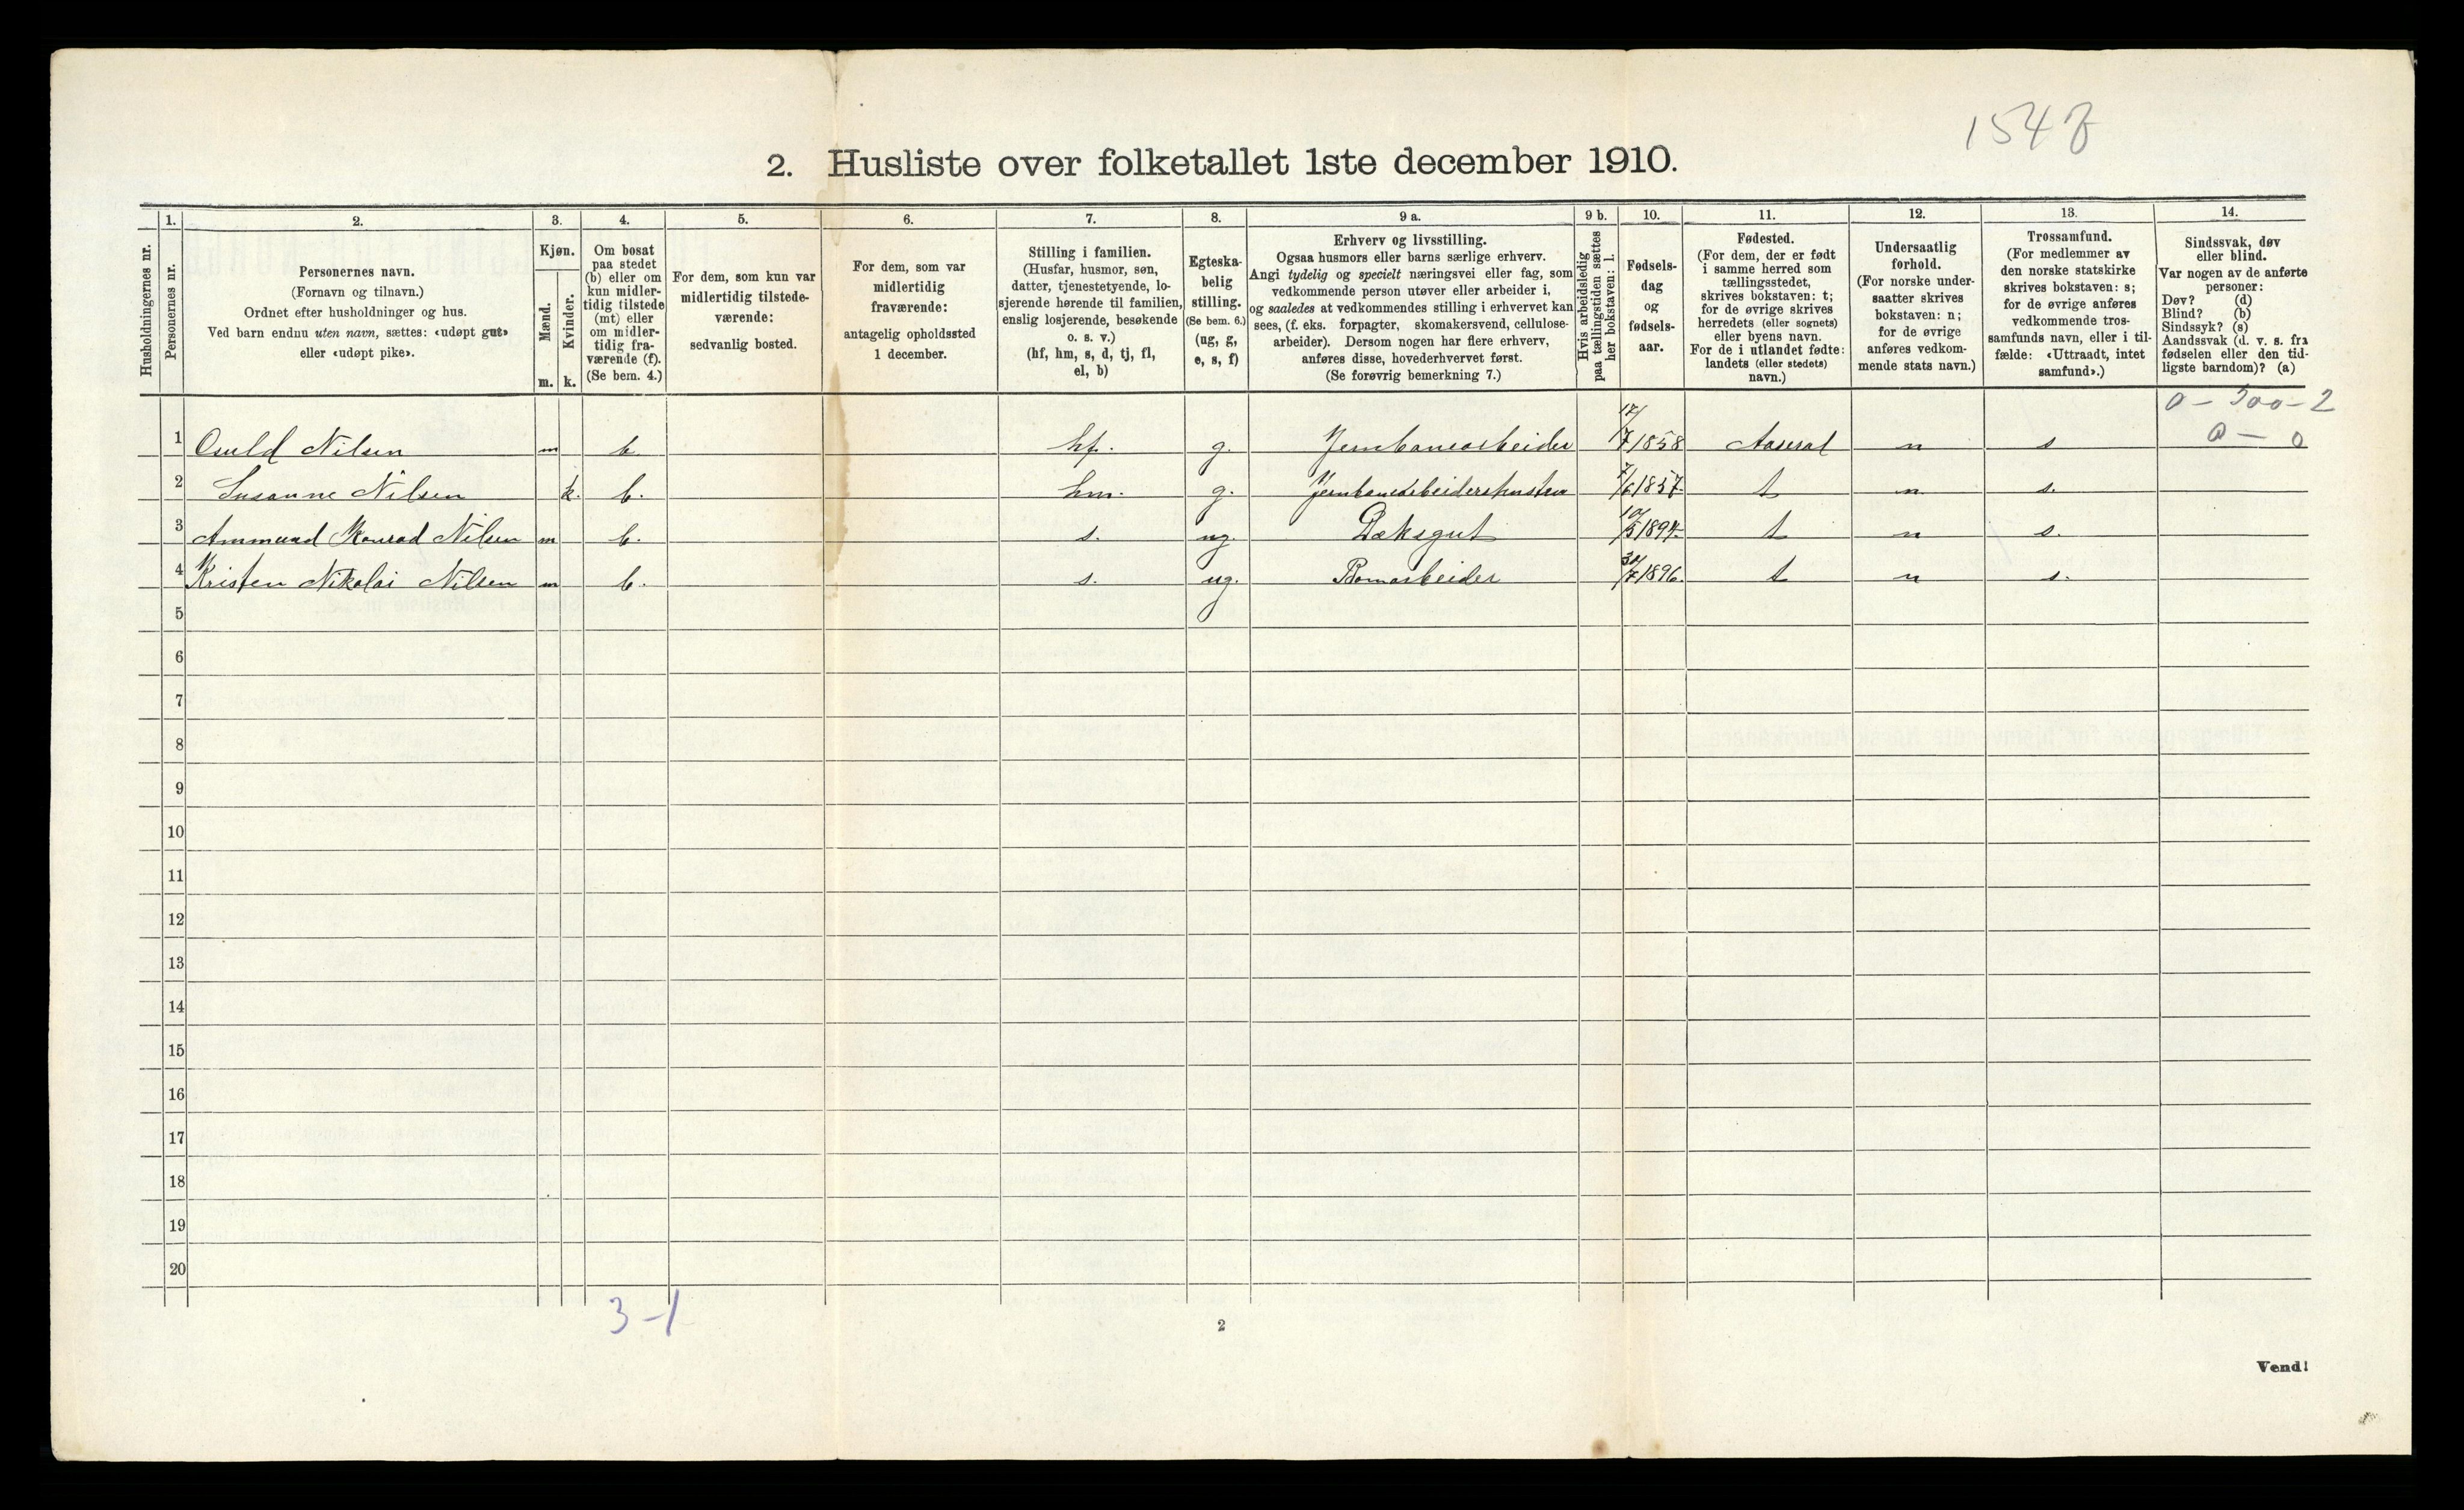 1547
2. Husliste over folketallet 1ste december 1910.
Husholdningernes nr.
1.
Personernes nr.
2.
Personernes navn.
(Fornavn og tilnavn.)
Ordnet efter husholdninger og hus.
Ved barn endnu uten navn, sættes: «udøpt gut»
eller «udøpt pike».
3.
Kjøn.
Mænd.
Kvinder.
m. k.
4.
Om bosat
paa stedet
(b) eller om
kun midler-
tidig tilstede
(mt) eller
om midler-
tidig fra-
værende (f).
(Se bem. 4.)
5.
For dem, som kun var
midlertidig tilstede-
værende:
sedvanlig bosted.
6.
For dem, som var
midlertidig
fraværende:
antagelig opholdssted
1 december.
7.
Stilling i familien.
(Husfar, husmor, søn,
datter, tjenestetyende, lo-
sjerende hørende til familien,
enslig losjerende, besøkende
o. s. v.)
(hf, hm, s, d, tj, fl,
el, b)
8.
Egteska-
belig
stilling.
(Se bem. 6.)
(ug, g,
e, s, f)
9 a.
Erhverv og livsstilling.
Ogsaa husmors eller barns særlige erhverv.
Angi tydelig og specielt næringsvei eller fag, som
vedkommende person utøver eller arbeider i,
og saaledes at vedkommendes stilling i erhvervet kan
sees, (f. eks. forpagter, skomakersvend, cellulose-
arbeider). Dersom nogen har flere erhverv,
anføres disse, hovederhvervet først.
(Se forøvrig bemerkning 7.)
9 b.
Hvis arbeidsledig
paa tællingstiden sættes
her bokstaven: l.
10.
Fødsels-
dag
og
fødsels-
aar.
11.
Fødested.
(For dem, der er født
i samme herred som
tællingsstedet,
skrives bokstaven: t;
for de øvrige skrives
herredets (eller sognets)
eller byens navn.
For de i utlandet fødte:
landets (eller stedets)
navn.)
12.
Undersaatlig
forhold.
(For norske under-
saatter skrives
bokstaven: n;
for de øvrige
anføres vedkom-
mende stats navn.)
13.
Trossamfund.
(For medlemmer av
den norske statskirke
skrives bokstaven: s;
for de øvrige anføres
vedkommende tros-
samfunds navn, eller i til-
fælde: «Uttraadt, intet
samfund».)
14.
Sindssvak, døv
eller blind.
Var nogen av de anførte
personer:
Døv? (d)
Blind? (b)
Sindssyk? (s)
Aandssvak (d. v. s. fra
fødselen eller den tid-
ligste barndom)? (a)
0 - 300 - 2
0 - 0
1 Osuld Nilsen m b hf. g. Jernbanearbeider 17/7 1858 Aaseral n s
2 Susanne Nilsen k. b. hm. g. Jernbanearbeidershustru 7/6 1857 t n s.
3 Ammund Konrad Nilsen m b. s. ug. Dæksgut 10/5 1894 t n s.
4 Kristen Nikolai Nilsen m b. s. ug. Bomarbeider 30/7 1896. t n s.
5
6
7
8
9
10
11
12
13
14
15
16
17
18
19
20
3-1
2
Vend!